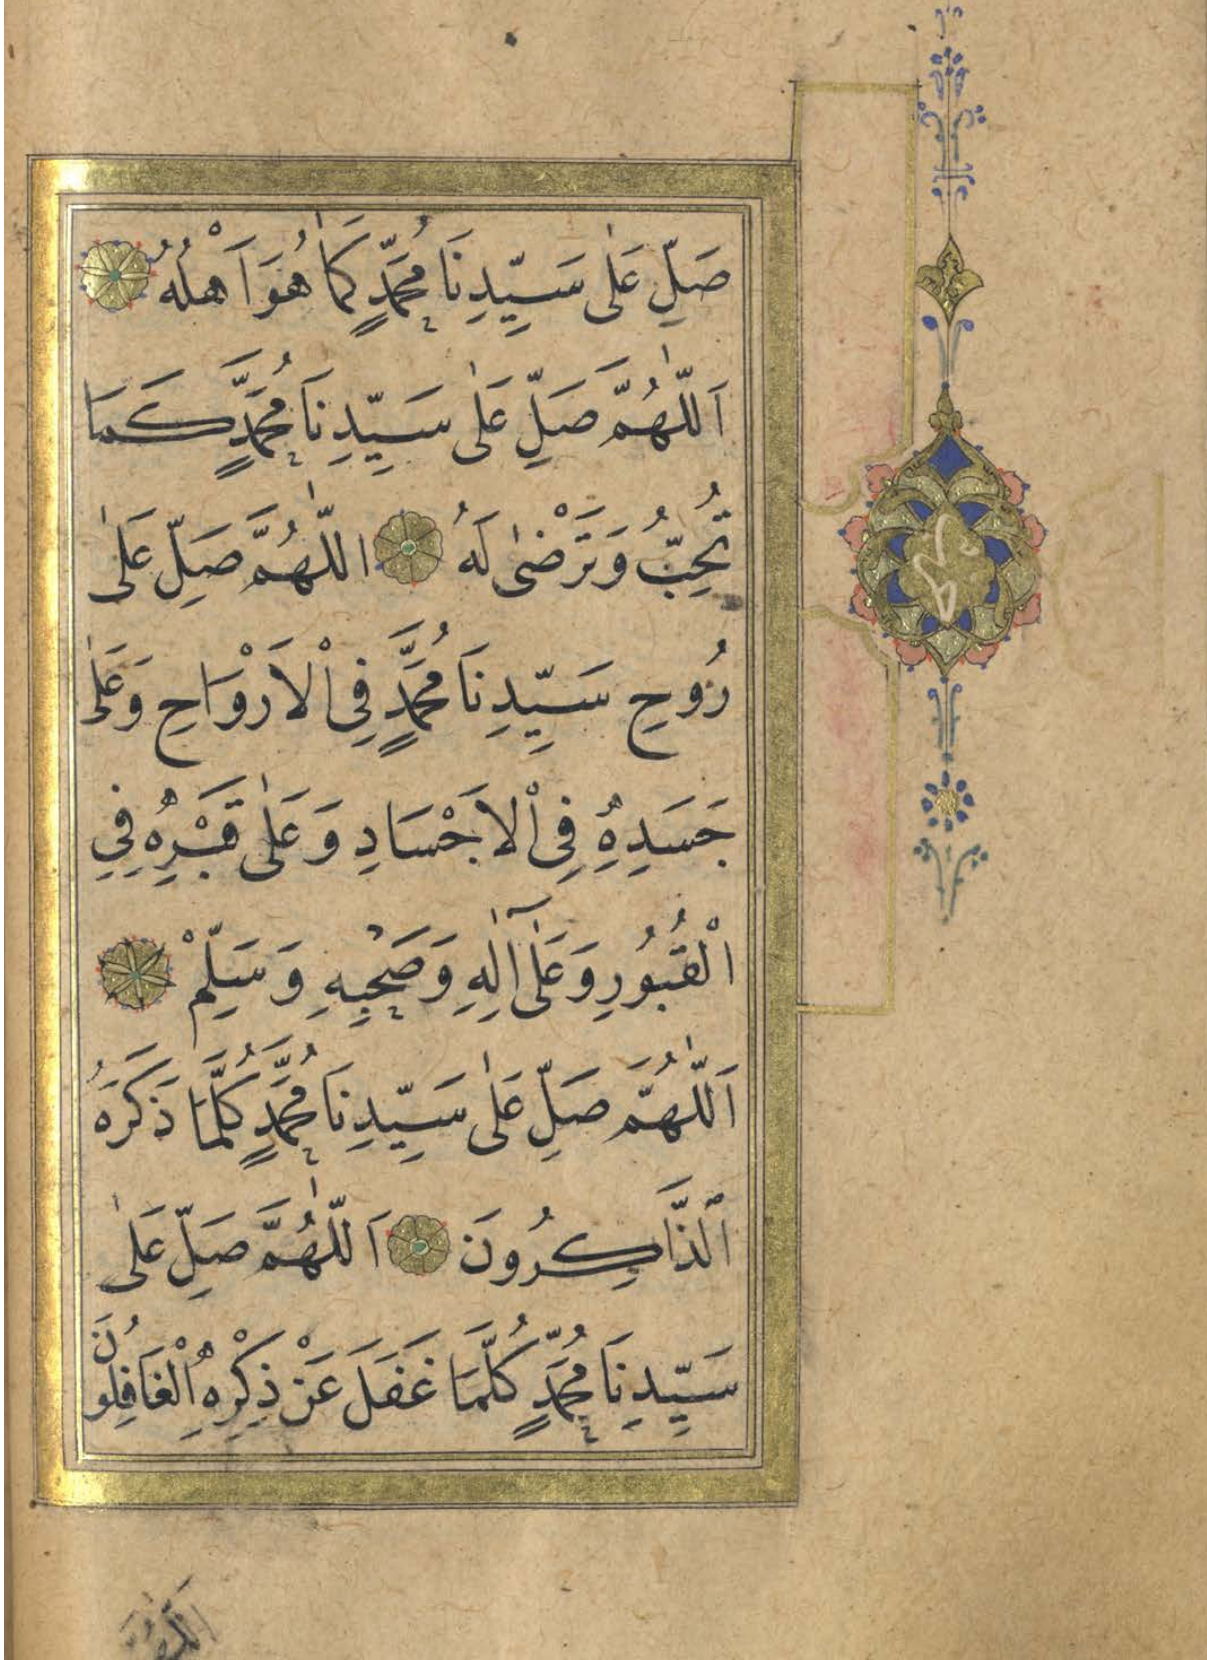 صَلِّ عَلٰى سَيِّدِنَا مُحَمَّدٍ كَمَا هُوَ اَهْلُهُ
اَللّٰهُمَّ صَلِّ عَلٰى سَيِّدِنَا مُحَمَّدٍ كَمَا
تُحِبُّ وَتَرْضٰى لَهُ اللّٰهُمَّ صَلِّ عَلٰى
رُوحِ سَيِّدِنَا مُحَمَّدٍ فِى اْلاَرْوَاحِ وَعَلٰى
جَسَدِهِ فِى اْلاَجْسَادِ وَعَلٰى قَبْرِهِ فِي
الْقُبُورِ وَعَلٰٓى اٰلِهِ وَصَحْبِهِ وَسَلِّمْ
اَللّٰهُمَّ صَلِّ عَلٰى سَيِّدِنَا مُحَمَّدٍ كُلَّمَا ذَكَرَهُ
الذَّاكِرُونَ اَللّٰهُمَّ صَلِّ عَلٰى
سَيِّدِنَا مُحَمَّدٍ كُلَّمَا غَفَلَ عَنْ ذِكْرِهِ الْغَافِلُونَ
اَللّٰهُمَّ